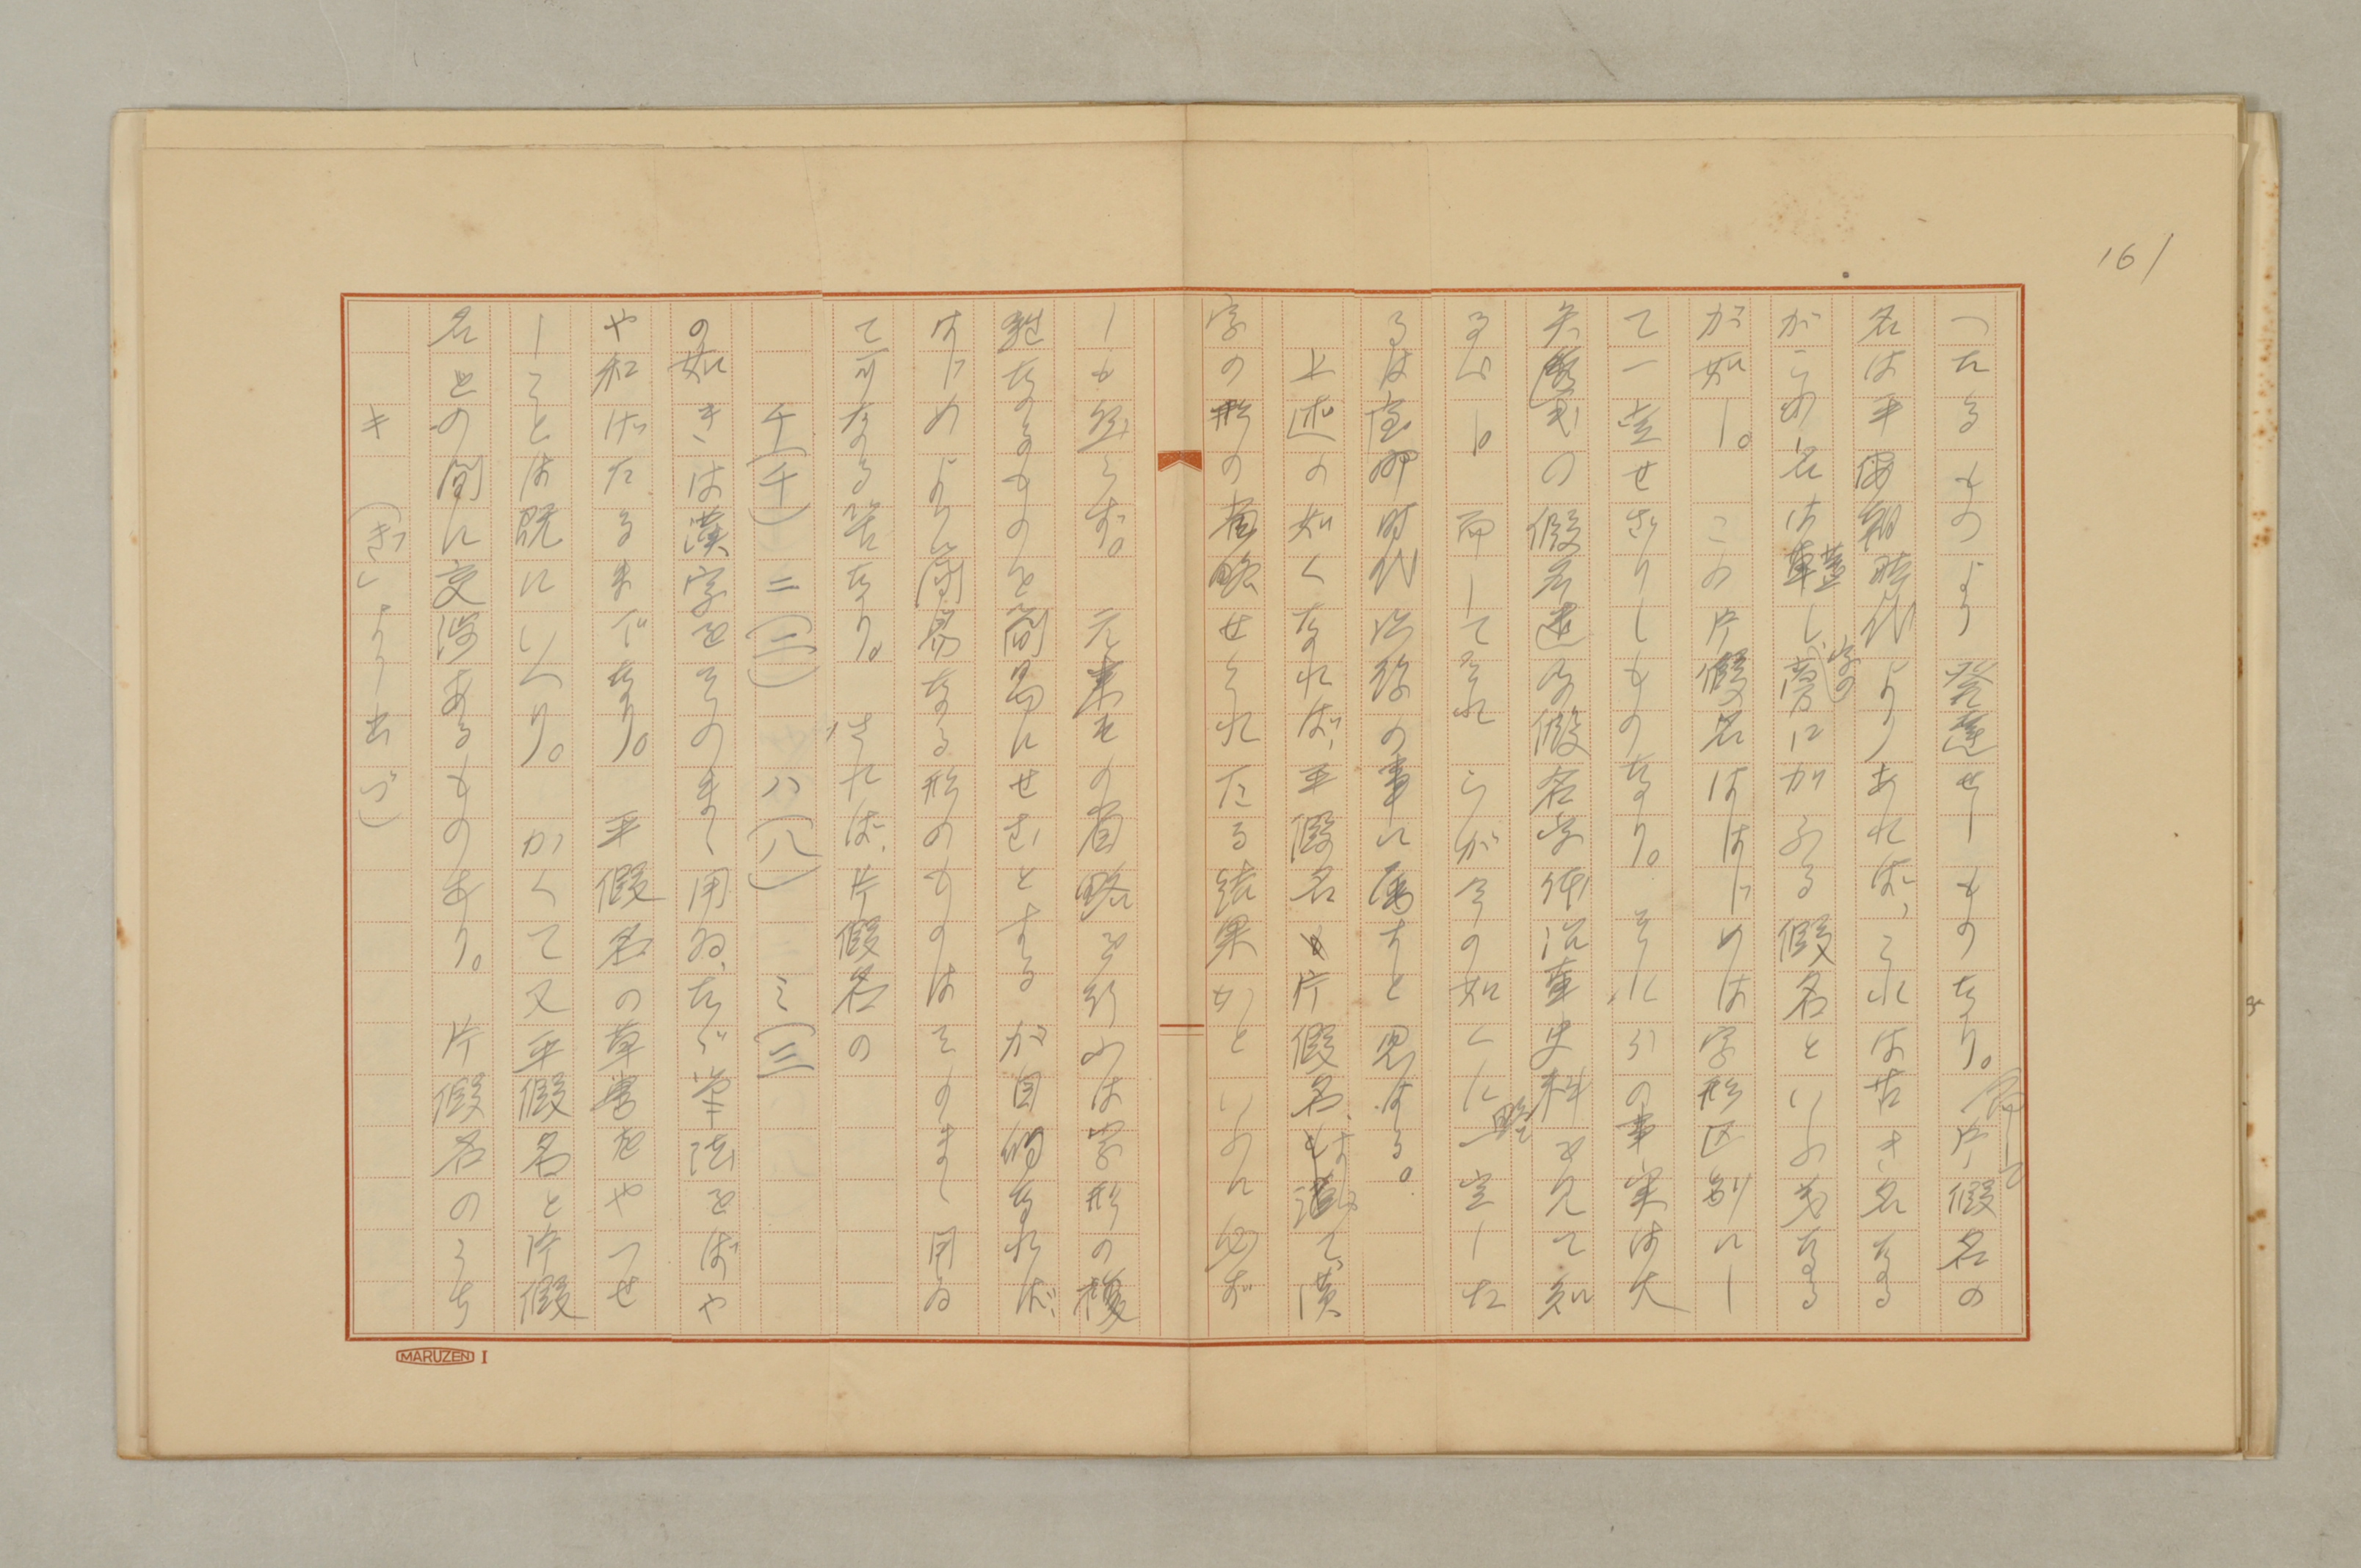 161
つたるものより発達せしものなり。而して片假名の
名は平安朝時代よりあれば、これは古き名なる
がこの名は草葢し、字の傍にかふる假名といふ義なる
が如し。この片假名はじめは字形区別にし
て一定せざりしものなり。それらの事実は大
矢氏の假名遣及假名字体沿革史料を見て知
るべし。而してそれらが今の如くに略一定した
るは室町時代以後の事に属すと思はる。
上述の如くなれば、平假名片假名はすべて漢
字の形の省略せられたる結果かといふに必ず
しも然らず。元来その省略を行ふは字形の複
雑なるものを簡易にせむとするが目的なれば、
はじめより簡易なる形のものはそのまゝ用ゐ
て可なる筈なり。されば、片假名の
千(千) 二(二) 八(八) ミ(三
の如きは漢字をそのまゝ用ゐ、たゞ筆法をばや
や和げたるまでなり。平假名の草書をやつせ
しことは既にいへり。かくて又平假名と片假
名との間に交渉あるものあり。片假名のうち
キ(きより出づ)
MARUZEN I